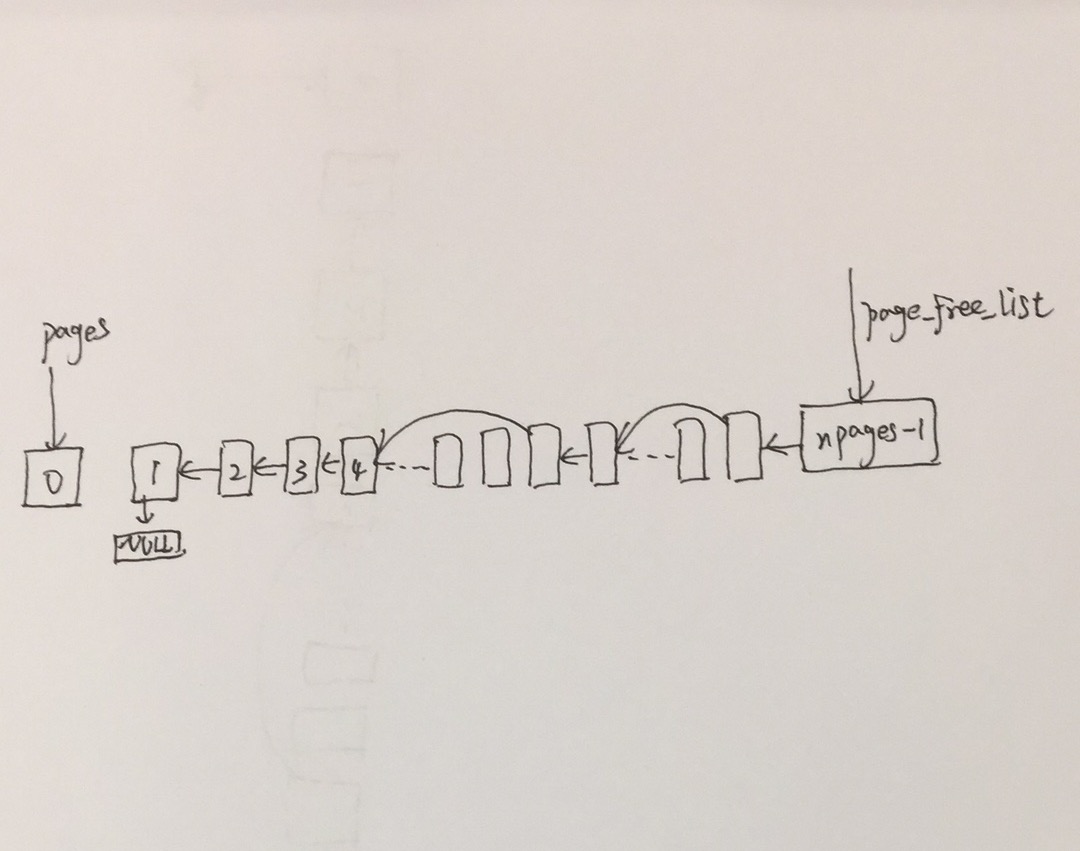 pages
page_free_list
0
1
2
3
4
npages-1
NULL